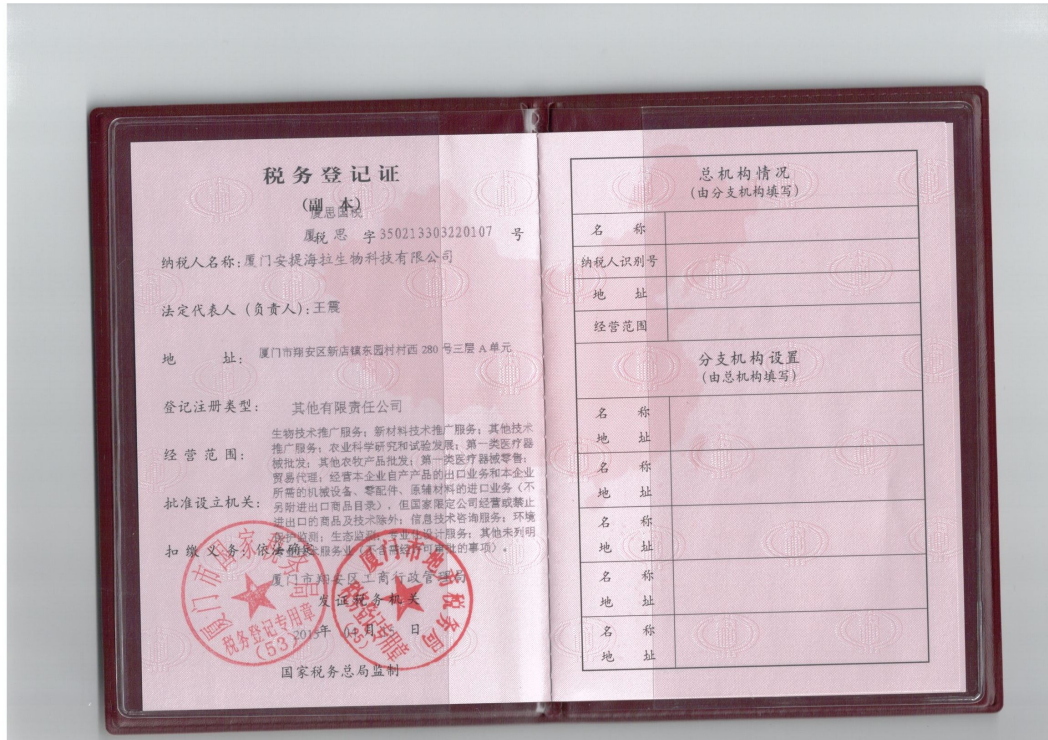 税务登记证
(副 本)
厦思国税
厦税 思 字 350213303220107 号
纳税人名称:厦门安提海拉生物科技有限公司
法定代表人（负责人）:王震
地 址: 厦门市翔安区新店镇东园村村西 280 号三层 A 单元
登记注册类型: 其他有限责任公司
生物技术推广服务；新材料技术推广服务；其他技术
推广服务；农业科学研究和试验发展；第一类医疗器
经营范围: 械批发；其他农牧产品批发；第一类医疗器械零售；
贸易代理；经营本企业自产产品的出口业务和本企业
所需的机械设备、零配件、原辅材料的进口业务（不
批准设立机关: 另附进出口商品目录），但国家限定公司经营或禁止
进出口的商品及技术除外；信息技术咨询服务；环境
保护监测；生态监测；专业化设计服务；其他未列明
扣缴义务:依法确定
服务业（不含需经许可审批的事项）。
厦门市翔安区工商行政管理局
发证税务机关
2015年 月 日
国家税务总局监制
厦门市国家税务局
税务登记专用章
(53)
厦门市地方税务局
税务登记专用章
(55)
总机构情况
(由分支机构填写)
名 称
纳税人识别号
地 址
经营范围
分支机构设置
(由总机构填写)
名 称
地 址
名 称
地 址
名 称
地 址
名 称
地 址
名 称
地 址